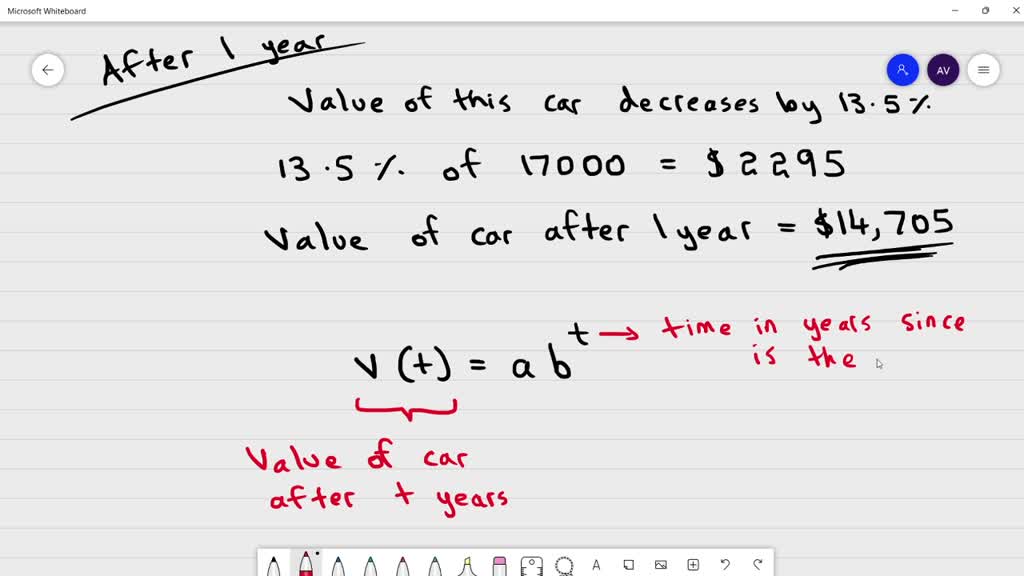 Microsoft Whiteboard
After 1 year
AV
Value of this car decreases by 13.5%
13.5% of 17000 = $2295
Value of car after 1 year = $14,705
v(t) = ab^t → time in years since
is the
Value of car
after t years
A